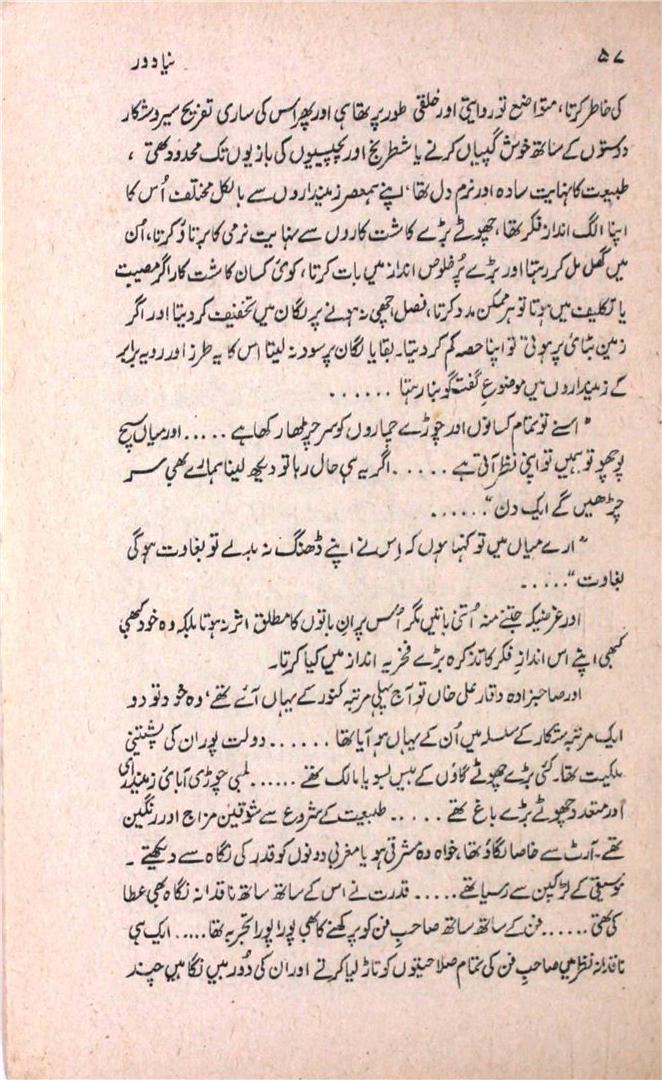 ۵۷
نیا دور
کی خاطر کرتا، متواضع تو روایتی اور خلقی طور پر تھا ہی اور پھر اس کی ساری تفریح سیر و شکار
دوستوں کے ساتھ خوش گپیاں کرنے یا شطرنج اور پچیسیوں کی بازیوں تک محدود تھی،
طبیعت کا نہایت سادہ اور نرم دل تھا، اپنے ہمعصر زمینداروں سے بالکل مختلف اُس کا
اپنا الگ انداز فکر تھا، چھوٹے بڑے کاشت کاروں سے نہایت نرمی کا برتاؤ کرتا، اُن
میں گھل مل کر رہتا اور بڑے پُرخلوص انداز میں بات کرتا، کوئی کسان کاشت کار اگر مصیبت
یا تکلیف میں ہوتا تو ہر ممکن مدد کرتا، فصل اچھی نہ ہونے پر لگان میں تخفیف کر دیتا اور اگر
زمین بٹائی پر ہوتی تو اپنا حصہ کم کر دیتا۔ بقایا لگان پر سود نہ لیتا اس کا یہ طرز اور رویہ برابر
کے زمینداروں میں موضوعِ گفتگو بنا رہتا ......
"اسنے تو تمام کسانوں اور چوڑے چماروں کو سر چڑھا رکھا ہے ..... اور میاں سچ
پوچھو تو ہمیں تو اپنی نظر آتی ہے ..... اگر یہ ہی حال رہا تو دیکھ لینا ہمارے بھی سر
چڑھیں گے ایک دن" ......
"ارے میاں میں تو کہتا ہوں کہ اِس نے اپنے ڈھنگ نہ بدلے تو بغاوت ہوگی
بغاوت" .....
اور غرضیکہ جتنے منہ اُتنی باتیں مگر اُس پر ان باتوں کا مطلق اثر نہ ہوتا بلکہ وہ خود بھی
کبھی اپنے اس اندازِ فکر کا تذکرہ بڑے فخریہ انداز میں کیا کرتا۔
اور صاحبزادہ وقار علی خاں تو آج پہلی مرتبہ کنور کے یہاں آئے تھے، وہ خود تو دو
ایک مرتبہ شکار کے سلسلہ میں اُن کے یہاں ہو آیا تھا ...... دولت پور ان کی پشتینی
ملکیت تھا۔ کئی بڑے چھوٹے گاؤں کے بیس بسویا مالک تھے ...... لمبی چوڑی آبائی زمینداری
اور متعدد چھوٹے بڑے باغ تھے ..... طبیعت کے شروع سے شوقین مزاج اور رنگین
تھے۔ آرٹ سے خاصا لگاؤ تھا، خواہ وہ مشرقی ہو یا مغربی دونوں کو قدر کی نگاہ سے دیکھتے۔
موسیقی کے لڑکپن سے رسیا تھے ..... قدرت نے اس کے ساتھ ساتھ ناقدانہ نگاہ بھی عطا
کی تھی ...... فن کے ساتھ ساتھ صاحبِ فن کو پرکھنے کا بھی پورا پورا تجربہ تھا ..... ایک ہی
ناقدانہ نظر میں صاحبِ فن کی تمام صلاحیتوں کو تاڑ لیا کرتے اور ان کی دُور بیں نگاہیں چند